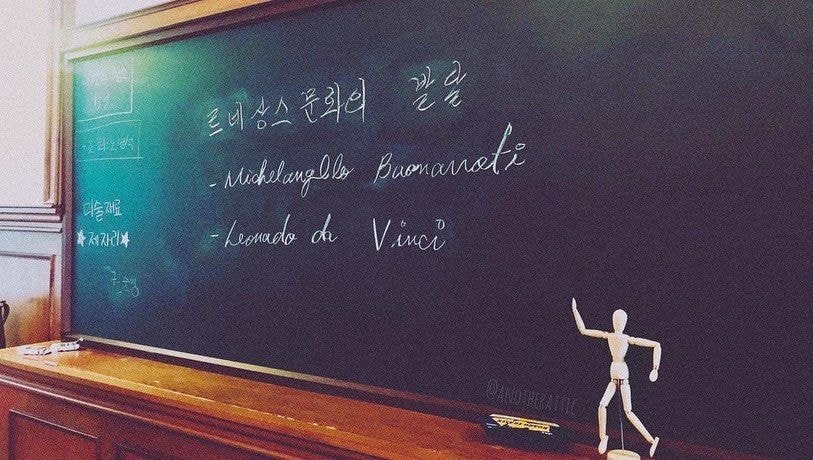 르네상스 문화의 발달
- Michelangelo Buonarroti
- Leonado da Vinci
미술재료
★제자리★
@ANOTHERATTIC